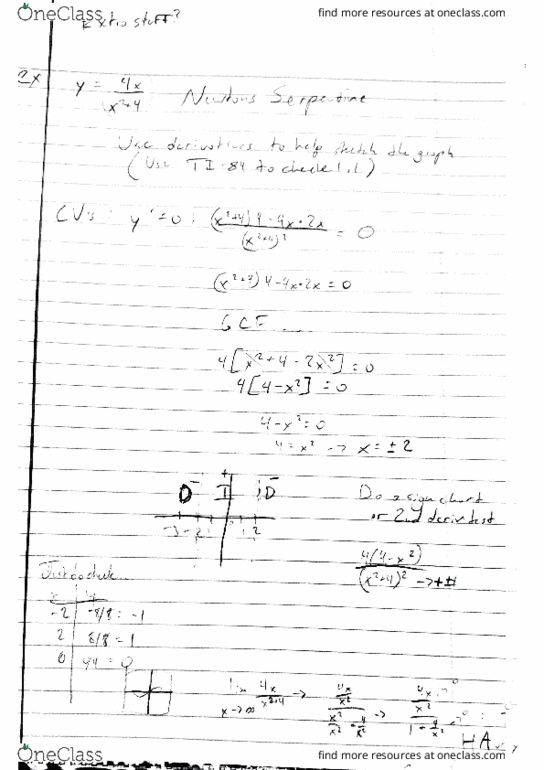 OneClass
find more resources at oneclass.com
Extra stuff?
Ex y = 4x / x²+4 Newtons Serpentine
Use derivatives to help sketch the graph
(Use TI-84 to check
CV's: y'=0: (x²+4)4-4x·2x / (x²+4)² = 0
(x²+4)4-4x·2x=0
GCF ....
4[x²+4-2x²]=0
4[4-x²]=0
4-x²=0
4=x² -> x=±2
D - I + D -
-3 -2 1 2
Do a sign chart
or 2nd deriv test
4(4-x²) / (x²+4)² -> +
Just do check...
x y
-2 -8/8 = -1
2 8/8 = 1
0 = 0
lim x->∞ 4x / x²+4 -> 4x/x² / x²/x² + 4/x² -> 4x/x² / 1+4/x²
HA
OneClass
find more resources at oneclass.com